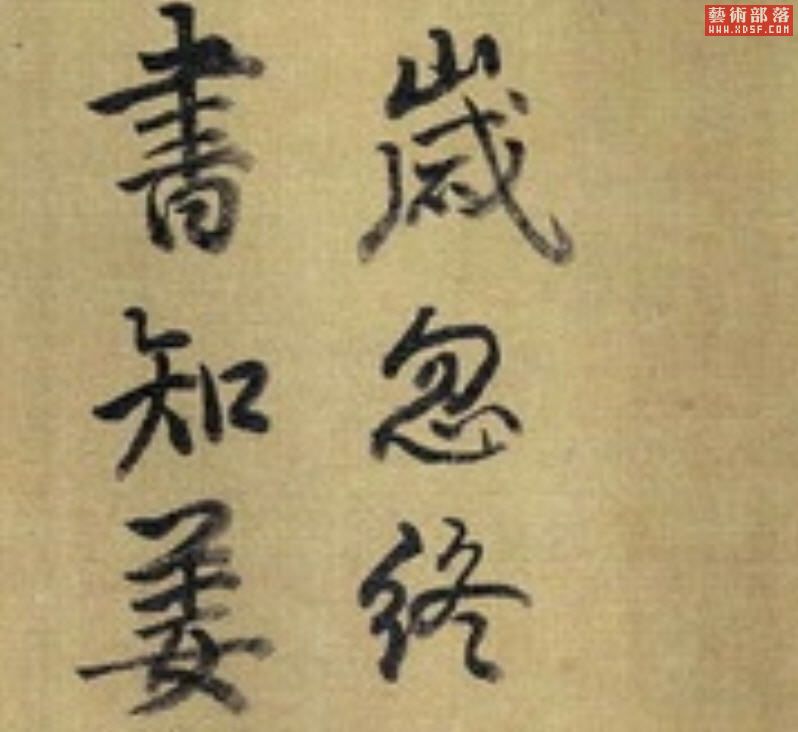 藝術部落
WWW.XDSF.COM
歲忽終
書知姜